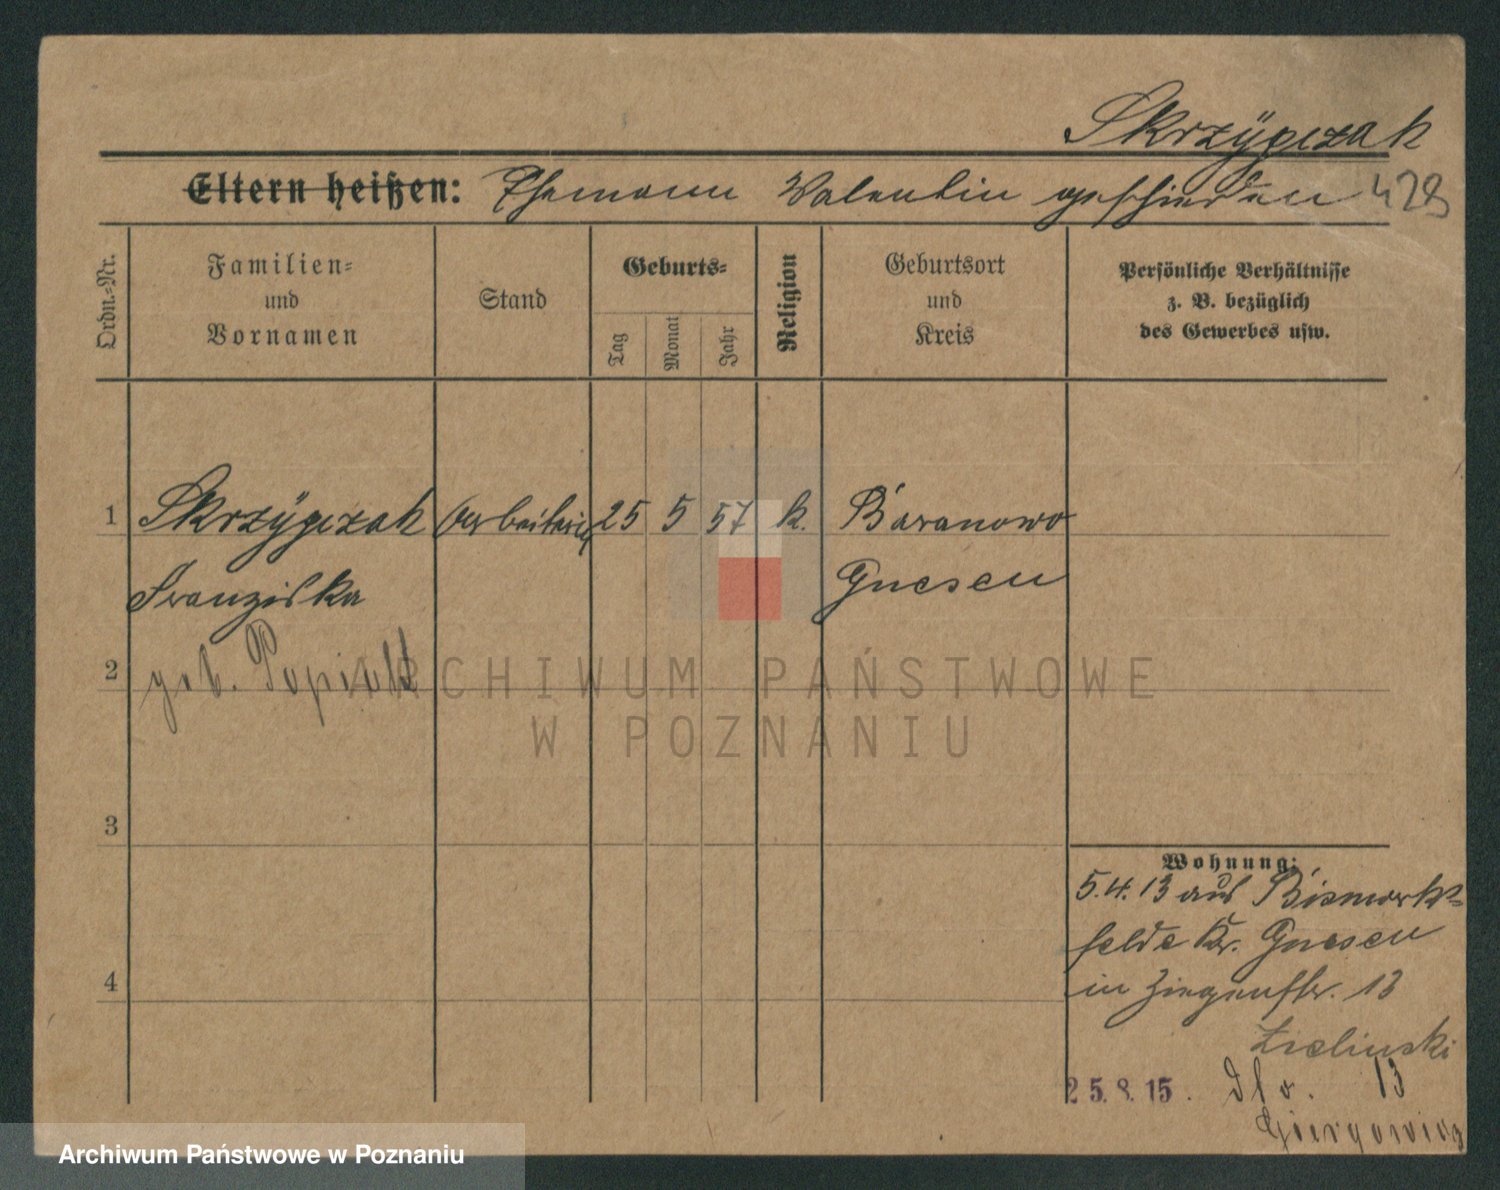 Skrzÿpczak
Eltern heißen: Ehemann Valentin geschieden 428
Ordn.-Nr.
Familien-
und
Vornamen
Stand
Geburts-
Tag
Monat
Jahr
Religion
Geburtsort
und
Kreis
Persönliche Verhältnisse
z. B. bezüglich
des Gewerbes usw.
1 Skrzÿpczak Arbeiterin 25 5 57 k. Baranowo
Franziska Gnesen
2 geb.
3
4
Wohnung:
5.4.13 aus Bismarks-
felde Kr. Gnesen
in Ziegenstr. 13
Zielinski
25.8.15. 13
ARCHIWUM PAŃSTWOWE
W POZNANIU
Archiwum Państwowe w Poznaniu